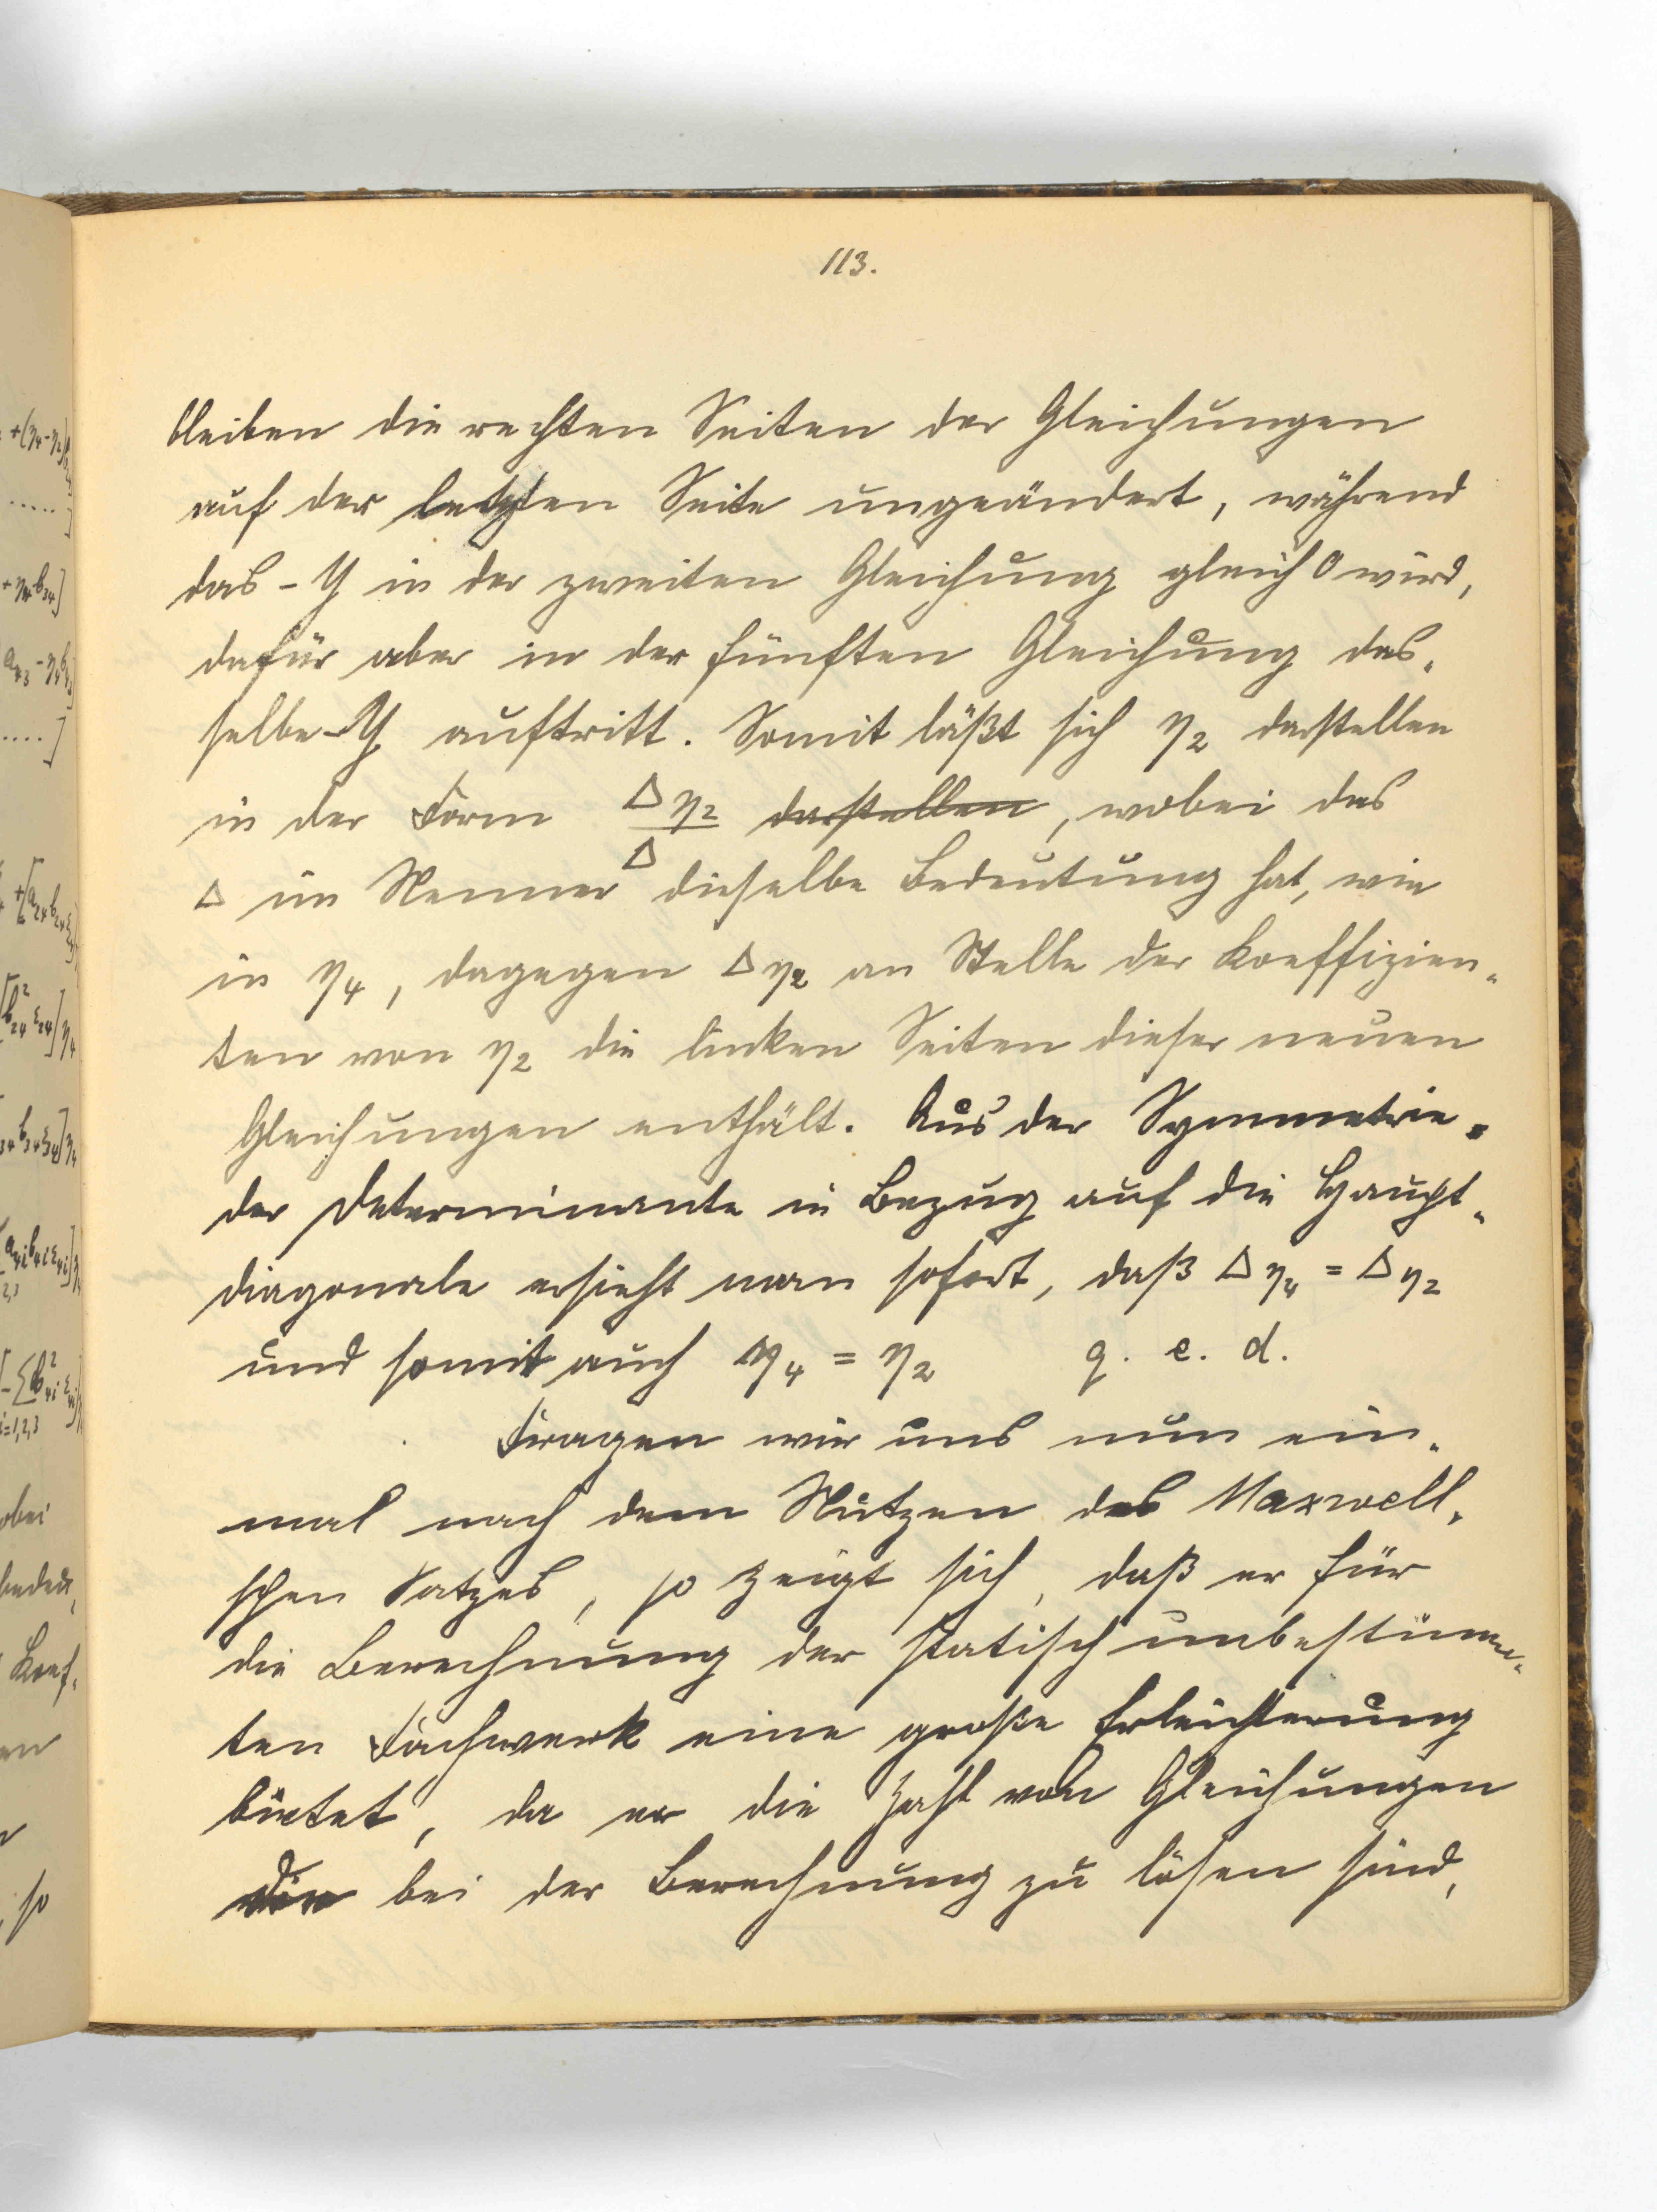 113.
bleiben die rechten Seiten der Gleichungen
auf der letzten Seite ungeändert, während
das - Y in der zweiten Gleichung gleich 0 wird,
dafür aber in der fünften Gleichung das-
selbe - Y auftritt. Somit läßt sich η₂ darstellen
in der Form Δη₂/Δ darstellen, wobei das
Δ im Nenner dieselbe Bedeutung hat, wie
in η₄, dagegen Δη₂ an Stelle der Koeffizien-
ten von η₂ die linken Seiten dieser neuen
Gleichungen enthält. Aus der Symmetrie
der Determinante in Bezug auf die Haupt-
diagonale ersieht man sofort, daß Δη₄ = Δη₂
und somit auch η₄ = η₂ q. e. d.
Fragen wir uns nun ein-
mal nach dem Nutzen des Maxwell-
schen Satzes, so zeigt sich, daß er für
die Berechnung der statisch unbestimm-
ten Fachwerk eine große Erleichterung
bietet, da er die Zahl von Gleichungen
die bei der Berechnung zu lösen sind,
obei
Koef-
en
so